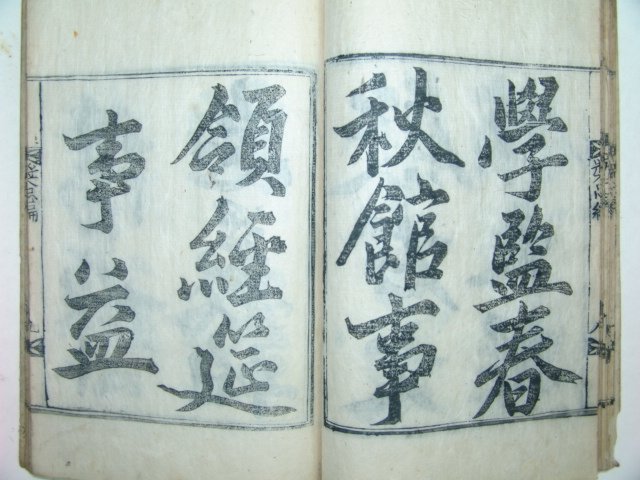 學監春
秋館事
領經筵
事益